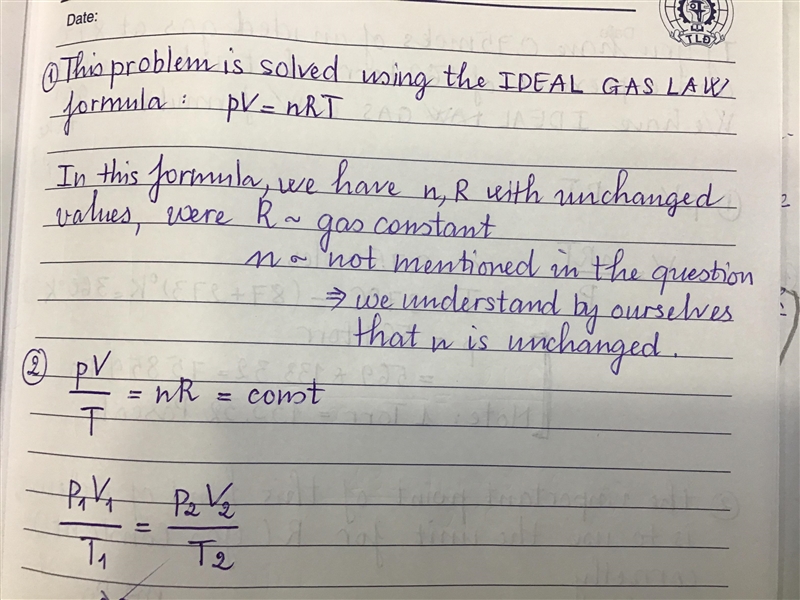 Date:
TLĐ
① This problem is solved using the IDEAL GAS LAW
formula: pV = nRT
In this formula, we have n, R with unchanged
values, were R ~ gas constant
n ~ not mentioned in the question
⇒ we understand by ourselves
that n is unchanged.
② pV/T = nR = const
P₁V₁/T₁ = P₂V₂/T₂